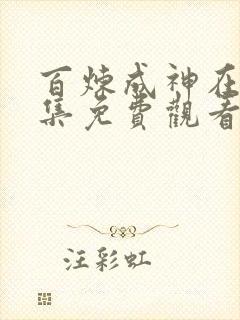 百炼成神在
集免費觀看
汪彩虹